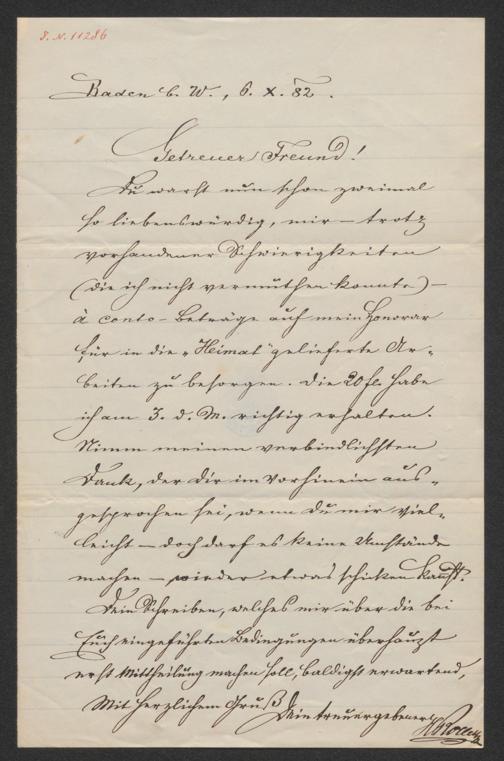 J. N. 11286
Baden b. W., 6. X. 82.
Getreuer Freund!
Du warst nun schon zweimal
so liebenswürdig, mir — trotz
vorhandener Schwierigkeiten
(die ich nicht vermuthen konnte) —
à conto-Beträge auf mein Honorar
für in die „Heimat" gelieferte Ar-
beiten zu besorgen. Die 20 fl. habe
ich am 3. d. M. richtig erhalten.
Nimm meinen verbindlichsten
Dank, der Dir im Vorhinein aus-
gesprochen sei, wenn Du mir viel-
leicht — doch darf es keine Umstände
machen — wieder etwas schicken kannst.
Dein Schreiben, welches mir über die bei
Euch eingeführten Bedingungen überhaupt
erst Mittheilung machen soll, baldigst erwartend,
Mit herzlichem Gruß
Dein treuergebener
HRollett